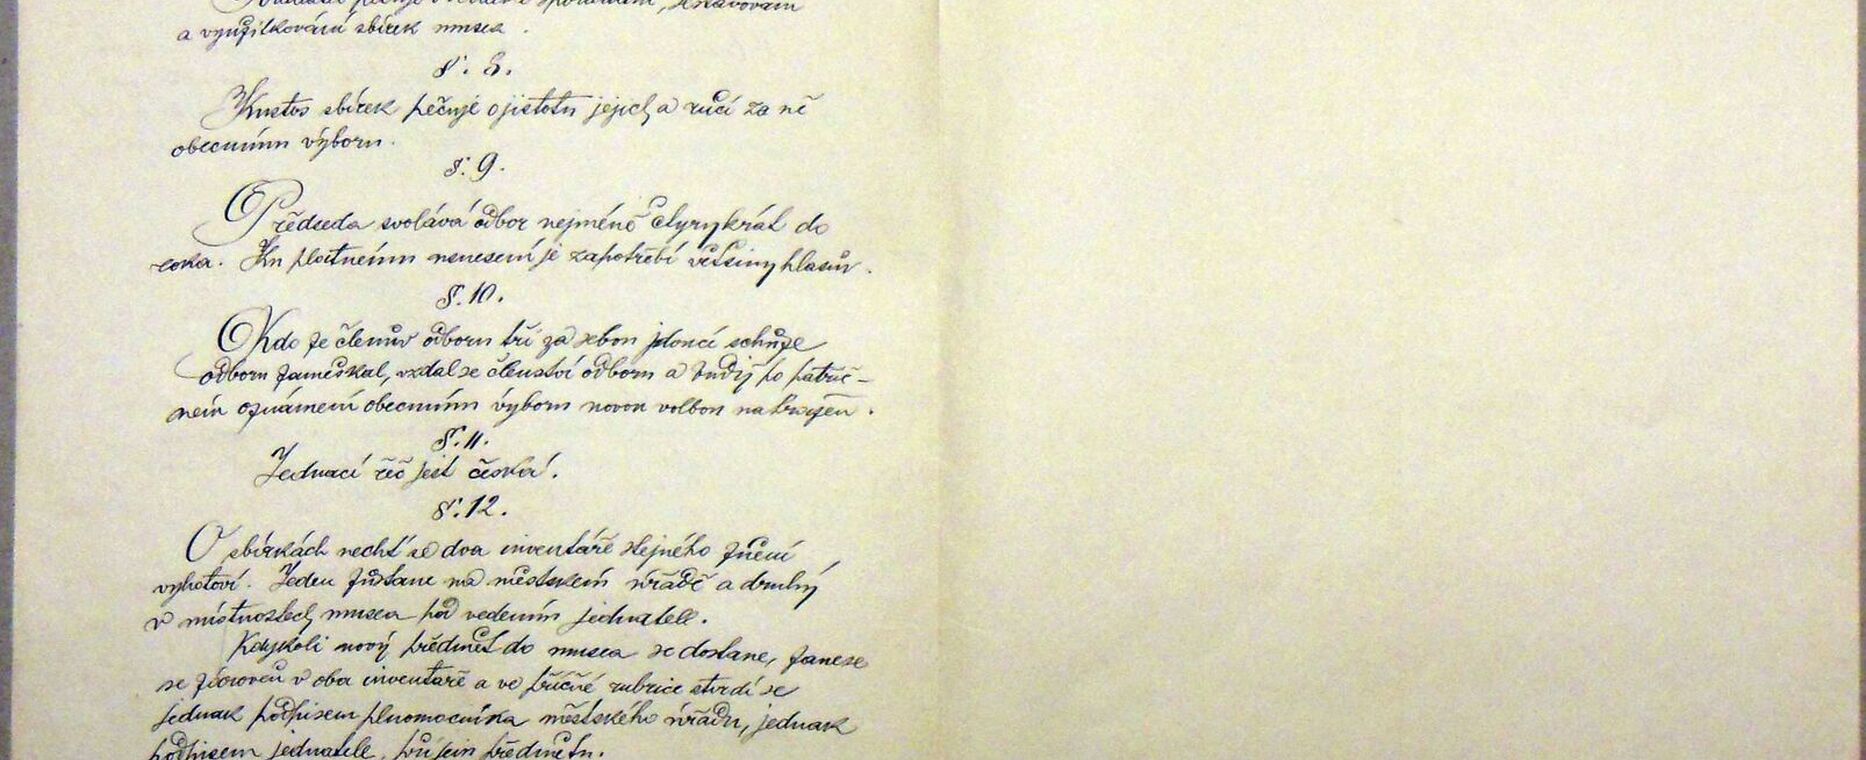 pečuje o spořádání, sestavování
a využitkování sbírek musea.
§. 8.
Kustos sbírek pečuje o jistotu jejich a ručí za ně
obecnímu výboru.
§. 9.
Předseda svolává odbor nejméně čtyrykrát do
roka. Ku platnému usnesení je zapotřebí většiny hlasův.
§. 10.
Kdo ze členův odboru tři za sebou jdoucí schůze
odboru zameškal, vzdal se členství odboru a budiž po patřič-
ném oznámení obecnímu výboru novou volbou nahrazen.
§. 11.
Jednací řeč jest česká.
§. 12.
O sbírkách nechť se dva inventáře stejného znění
vyhotoví. Jeden zůstane na městském úřadě a druhý
v místnostech musea pod vedením jednatele.
Kdykoli nový předmět do musea se dostane, zanese
se zároveň v oba inventáře a ve příčné rubrice stvrdí se
jednak podpisem plnomocníka městského úřadu, jednak
podpisem jednatele, příjem předmětu.